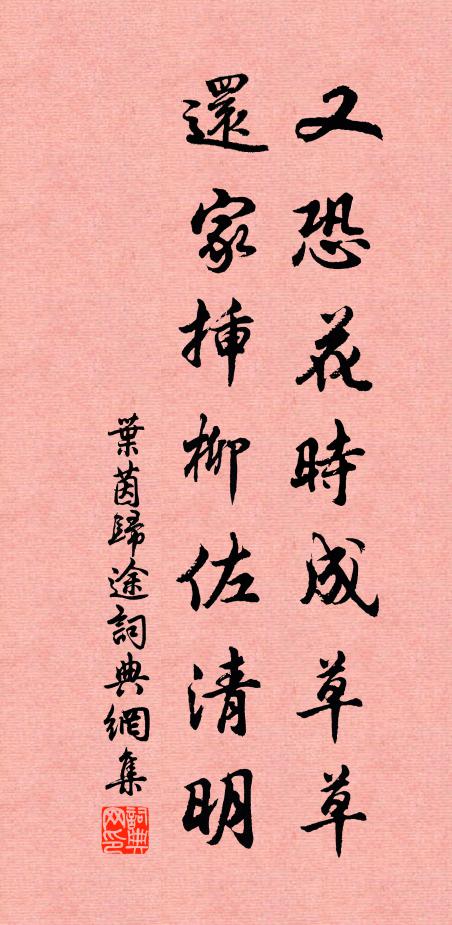 又恐花時成草草
還家挿柳佐清明
葉茵歸途詞典網集
詞典网印